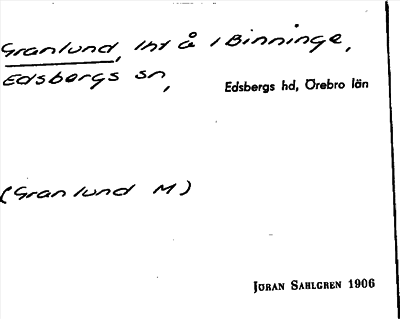 Granlund, lht å 1 Binninge,
Edsbergs sn,
Edsbergs hd, Örebro län
(Granlund M)
JÖRAN SAHLGREN 1906